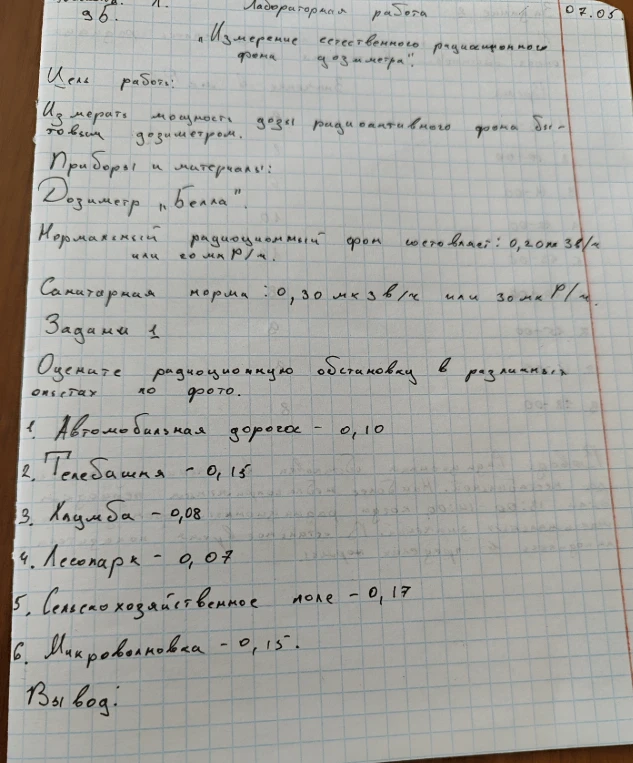 Л. Лабораторная работа 07.05.
9б.
„Измерение естественного радиационного
фона дозиметра".
Цель работы:
Измерать мощность дозы радиоактивного фона бы-
товым дозиметром.
Приборы и материалы:
Дозиметр „Белла".
Нормальный радиоционный фон состовляет: 0,20мкЗв/ч
или 20 мкР/ч.
Санитарная норма: 0,30 мкЗв/ч или 30 мкР/ч.
Задани 1
Оцените радиоционную обстановку в различных
опытах по фото.
1. Автомобильная дорога - 0,10
2. Телебашня - 0,15
3. Клумба - 0,08
4. Лесопарк - 0,07
5. Сельскохозяйственное поле - 0,17
6. Микроволновка - 0,15.
Вывод: